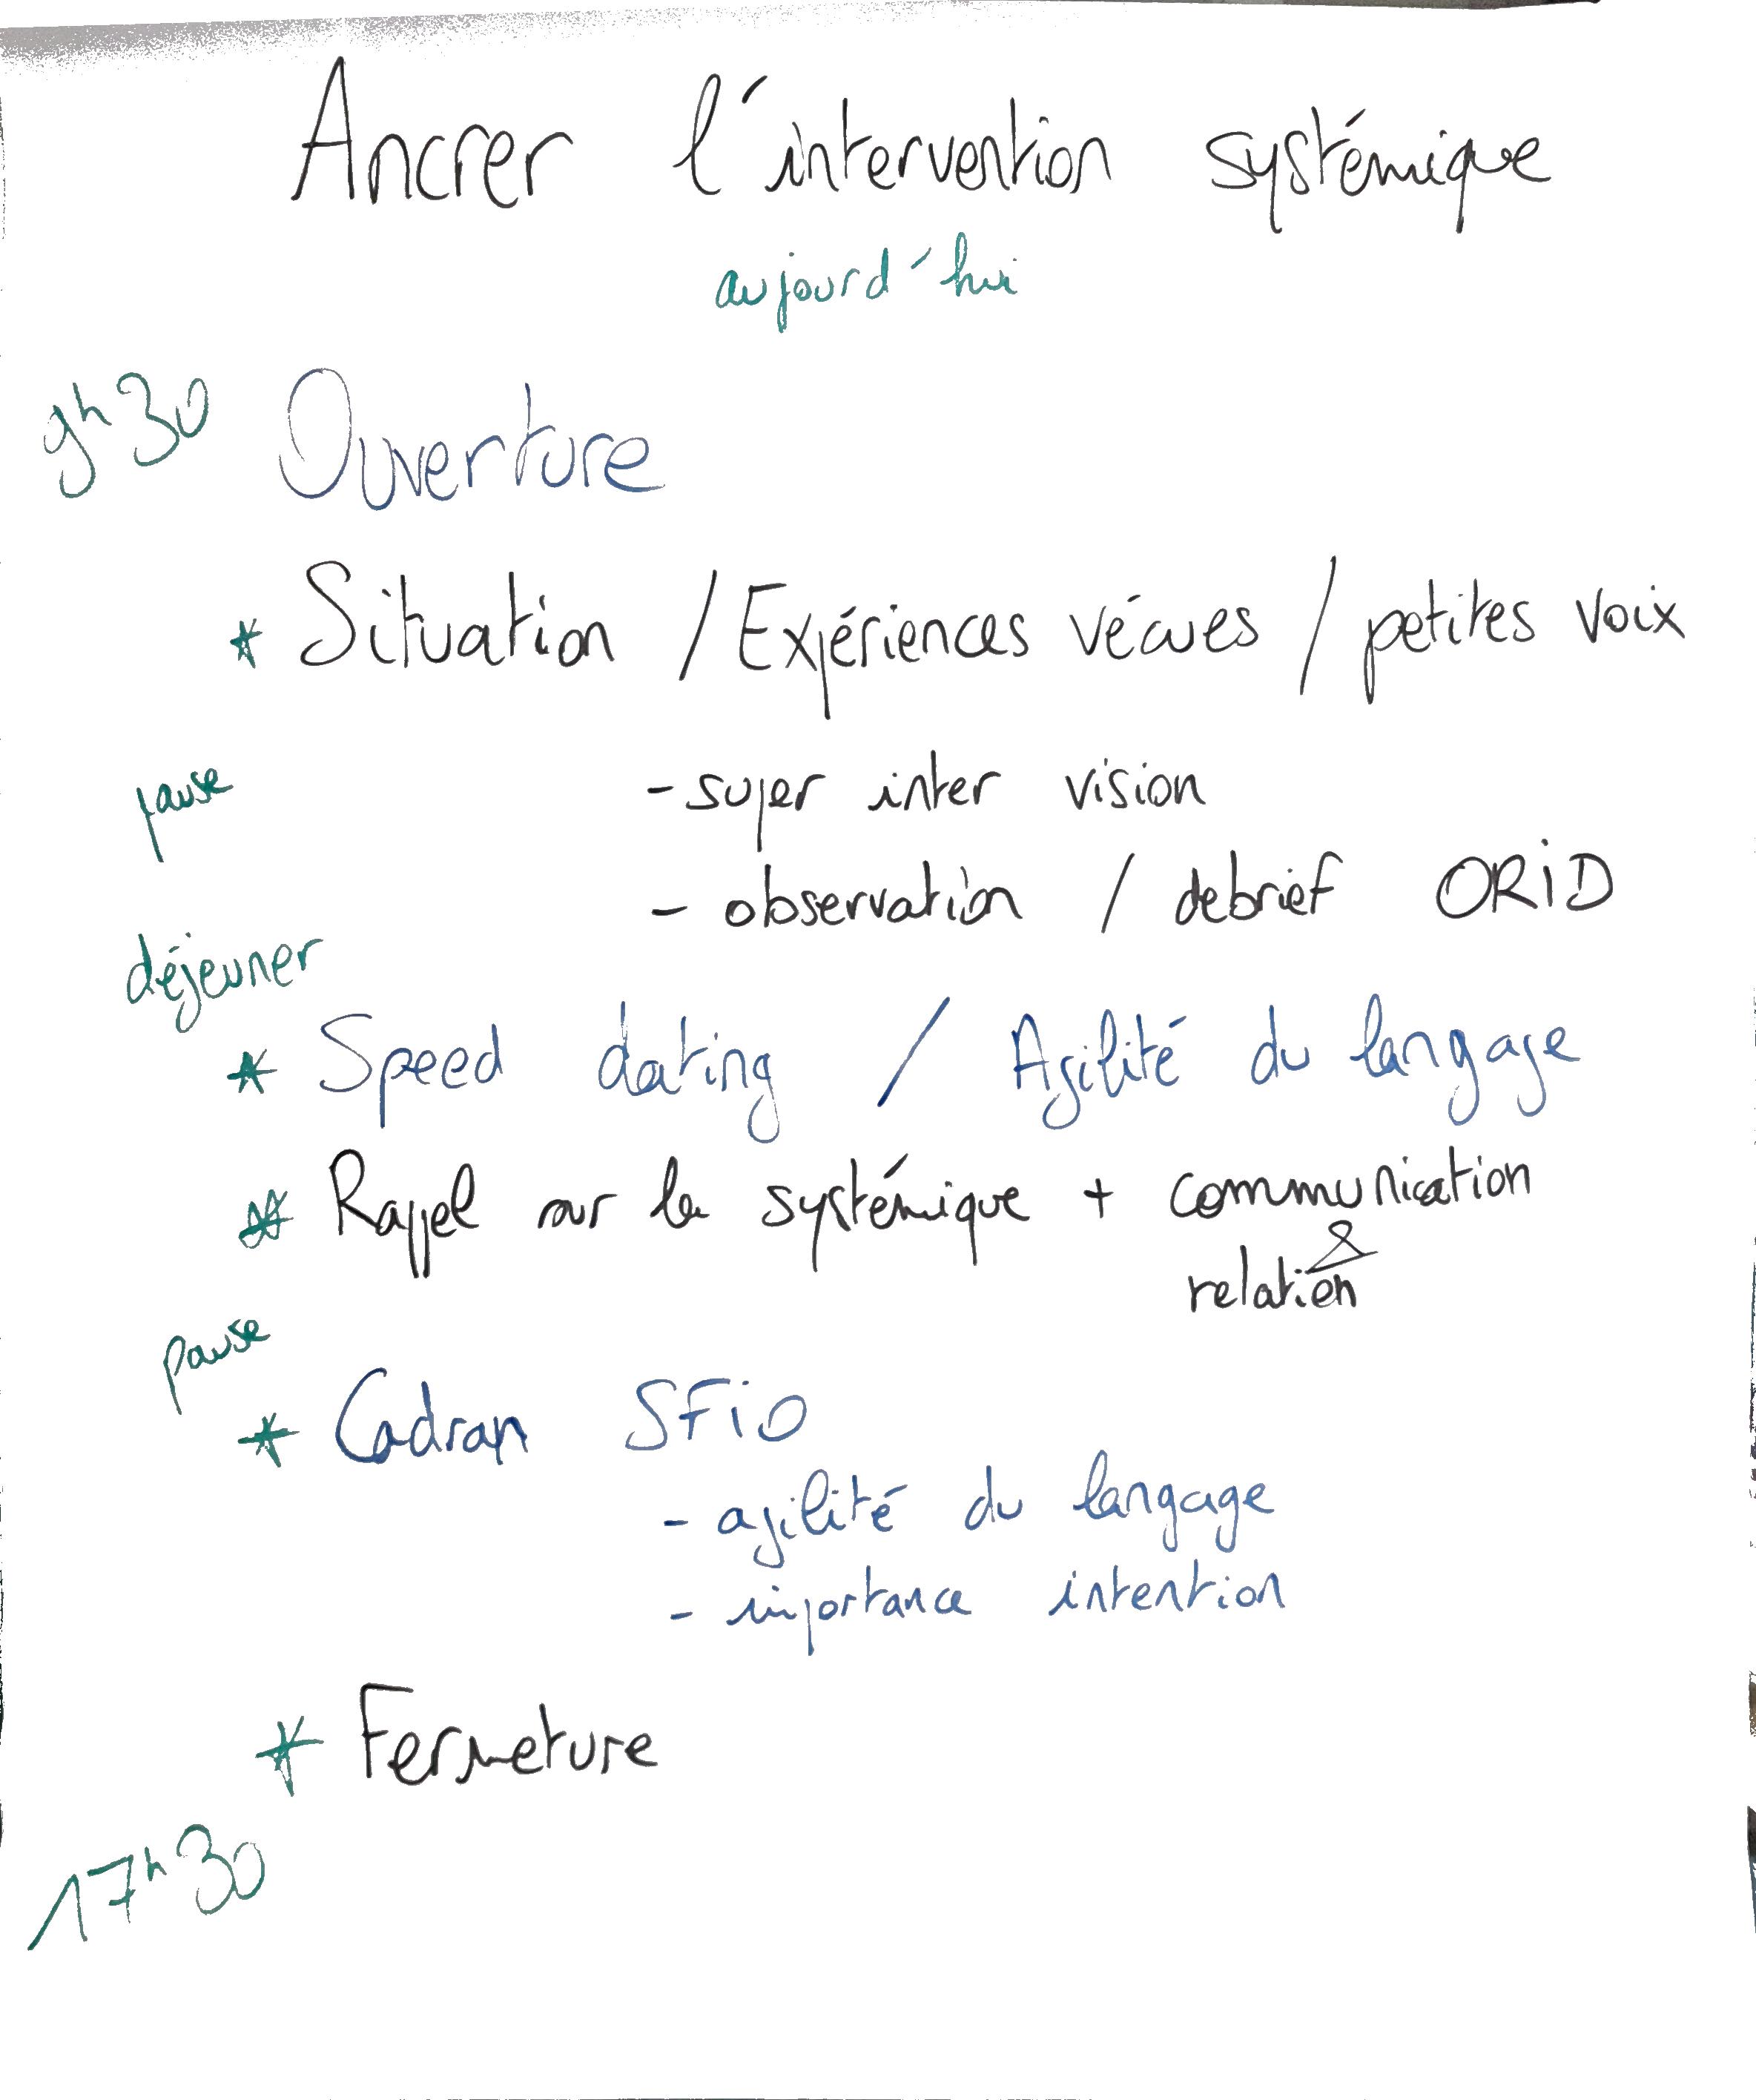 Ancrer l'intervention systémique
aujourd'hui
9h30 Ouverture
* Situation / Expériences vécues / petites voix
pause - super inter vision
- observation / debrief ORiD
déjeuner
* Speed dating / Agilité du langage
* Rappel sur la systémique + communication
& relation
pause
* Cadran SFiO
- agilité du langage
- importance intention
* Fermeture
17h30